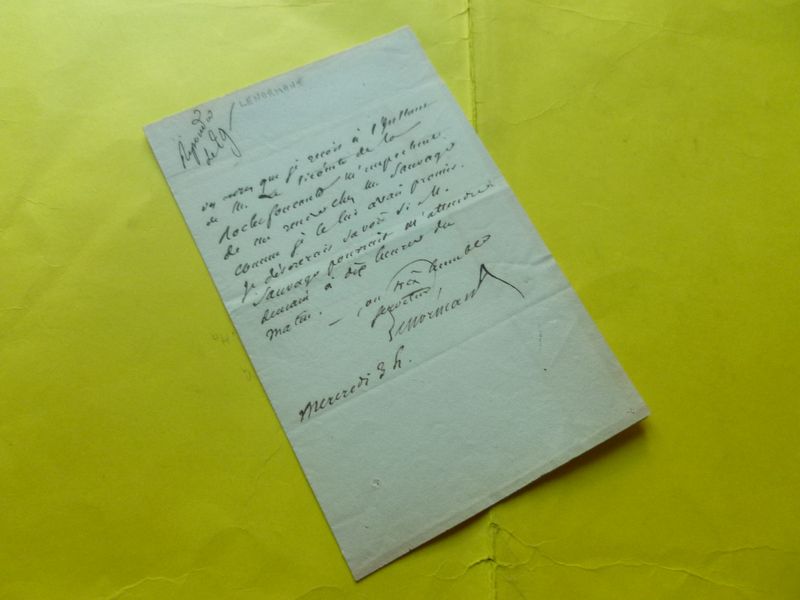 LENORMANT
Répondu
le 29
un mot que je reçois à l'instant
de M. Le Vicomte de la
Rochefoucauld m'empêche
de me rendre chez M. Sauvage
comme je le lui avais promis.
je désirerais savoir si M.
Sauvage pourrait m'attendre
demain à dix heures du
matin. — son très humble
serviteur,
Lenormant
Mercredi 3 h.